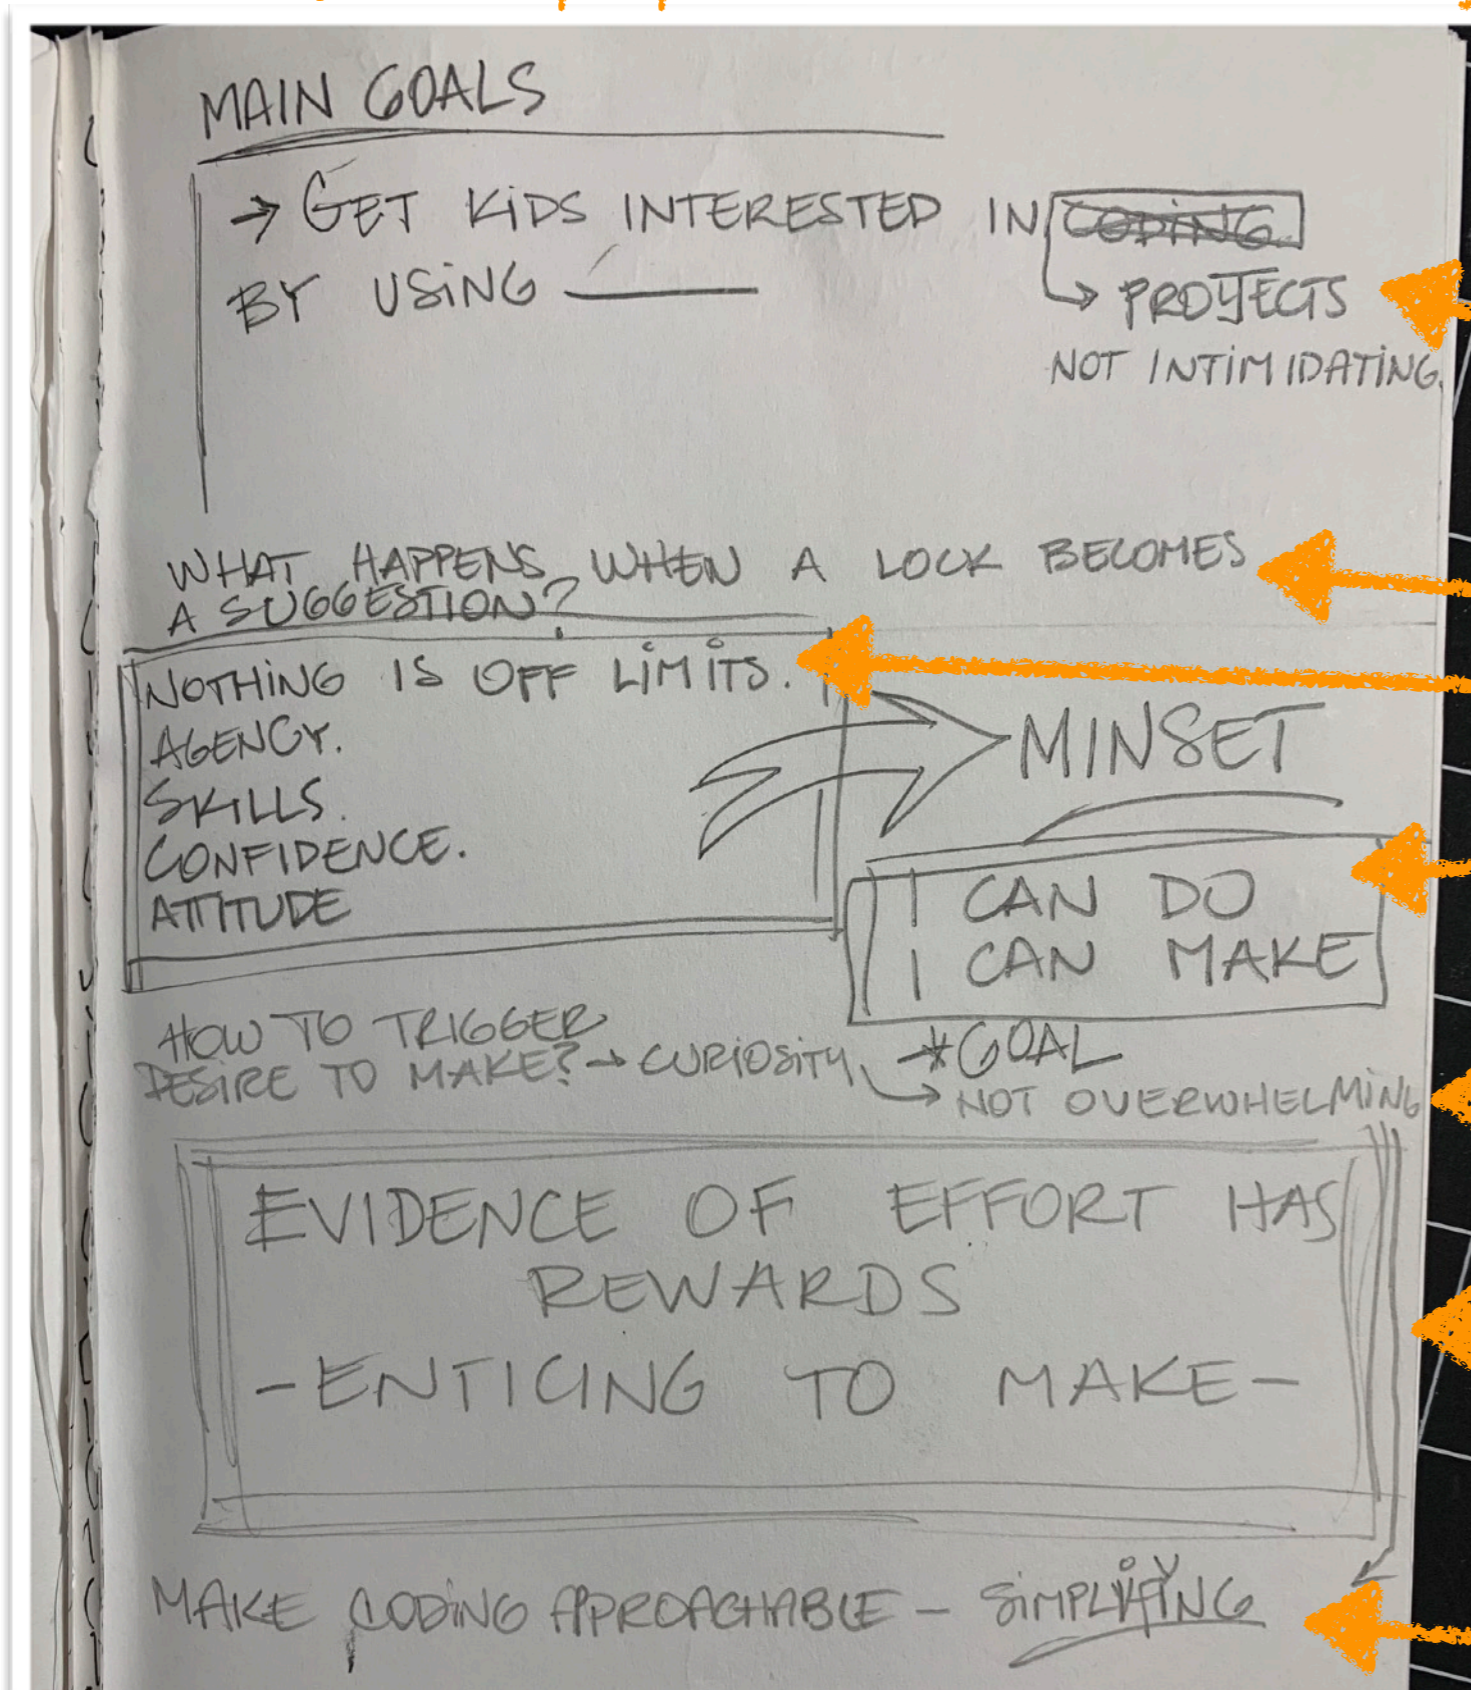 MAIN GOALS
→ GET KIDS INTERESTED IN CODING
BY USING ____ ↳ PROJECTS
NOT INTIMIDATING.
WHAT HAPPENS WHEN A LOCK BECOMES
A SUGGESTION?
NOTHING IS OFF LIMITS.
AGENCY.
SKILLS.
CONFIDENCE.
ATTITUDE
MINSET
I CAN DO
I CAN MAKE
HOW TO TRIGGER
DESIRE TO MAKE? → CURIOSITY
*GOAL
↳ NOT OVERWHELMING
EVIDENCE OF EFFORT HAS
REWARDS
-ENTICING TO MAKE-
MAKE CODING APPROACHABLE - SIMPLIFYING